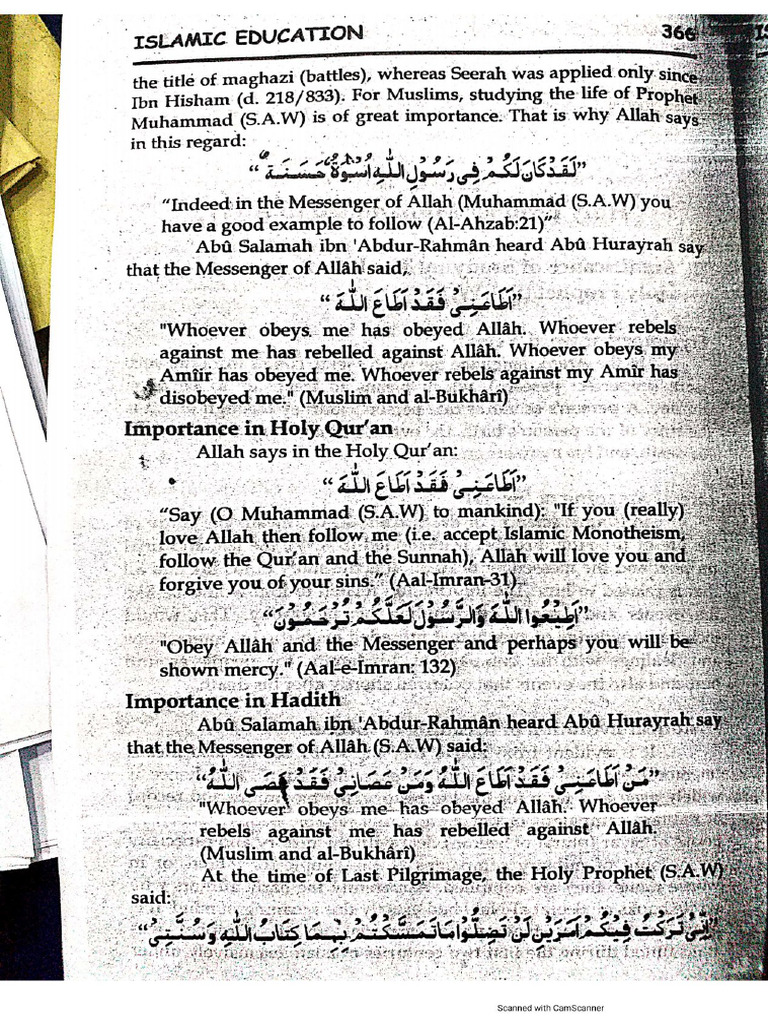 ISLAMIC EDUCATION 366
the title of maghazi (battles), whereas Seerah was applied only since
Ibn Hisham (d. 218/833). For Muslims, studying the life of Prophet
Muhammad (S.A.W) is of great importance. That is why Allah says
in this regard:
”لَقَدْ كَانَ لَكُمْ فِى رَسُوْلِ اللّٰهِ اُسْوَةٌ حَسَنَةٌ“
“Indeed in the Messenger of Allah (Muhammad (S.A.W) you
have a good example to follow (Al-Ahzab:21)”
Abû Salamah ibn 'Abdur-Rahmân heard Abû Hurayrah say
that the Messenger of Allâh said,
”اَطَاعَنِىْ فَقَدْ اَطَاعَ اللّٰهَ“
"Whoever obeys me has obeyed Allâh. Whoever rebels
against me has rebelled against Allâh. Whoever obeys my
Amîir has obeyed me. Whoever rebels against my Amîr has
disobeyed me." (Muslim and al-Bukhârî)
Importance in Holy Qur'an
Allah says in the Holy Qur'an:
”اَطَاعَنِىْ فَقَدْ اَطَاعَ اللّٰهَ“
“Say (O Muhammad (S.A.W) to mankind): "If you (really)
love Allah then follow me (i.e. accept Islamic Monotheism,
follow the Qur'an and the Sunnah), Allah will love you and
forgive you of your sins.” (Aal-Imran-31)
”اَطِيْعُوا اللّٰهَ وَالرَّسُوْلَ لَعَلَّكُمْ تُرْحَمُوْنَ“
"Obey Allâh and the Messenger and perhaps you will be
shown mercy." (Aal-e-Imran: 132)
Importance in Hadith
Abû Salamah ibn 'Abdur-Rahmân heard Abû Hurayrah say
that the Messenger of Allâh (S.A.W) said:
”مَنْ اَطَاعَنِىْ فَقَدْ اَطَاعَ اللّٰهُ وَمَنْ عَصَانِىْ فَقَدْ عَصَى اللّٰهُ“
"Whoever obeys me has obeyed Allâh. Whoever
rebels against me has rebelled against Allâh.
(Muslim and al-Bukhârî)
At the time of Last Pilgrimage, the Holy Prophet (S.A.W)
said:
”اِنِّىْ تَرَكْتُ فِيْكُمْ اَمْرَيْنِ لَنْ تَضِلُّوْا مَا تَمَسَّكْتُمْ بِهِمَا كِتَابُ اللّٰهِ وَسُنَّتِىْ“
Scanned with CamScanner